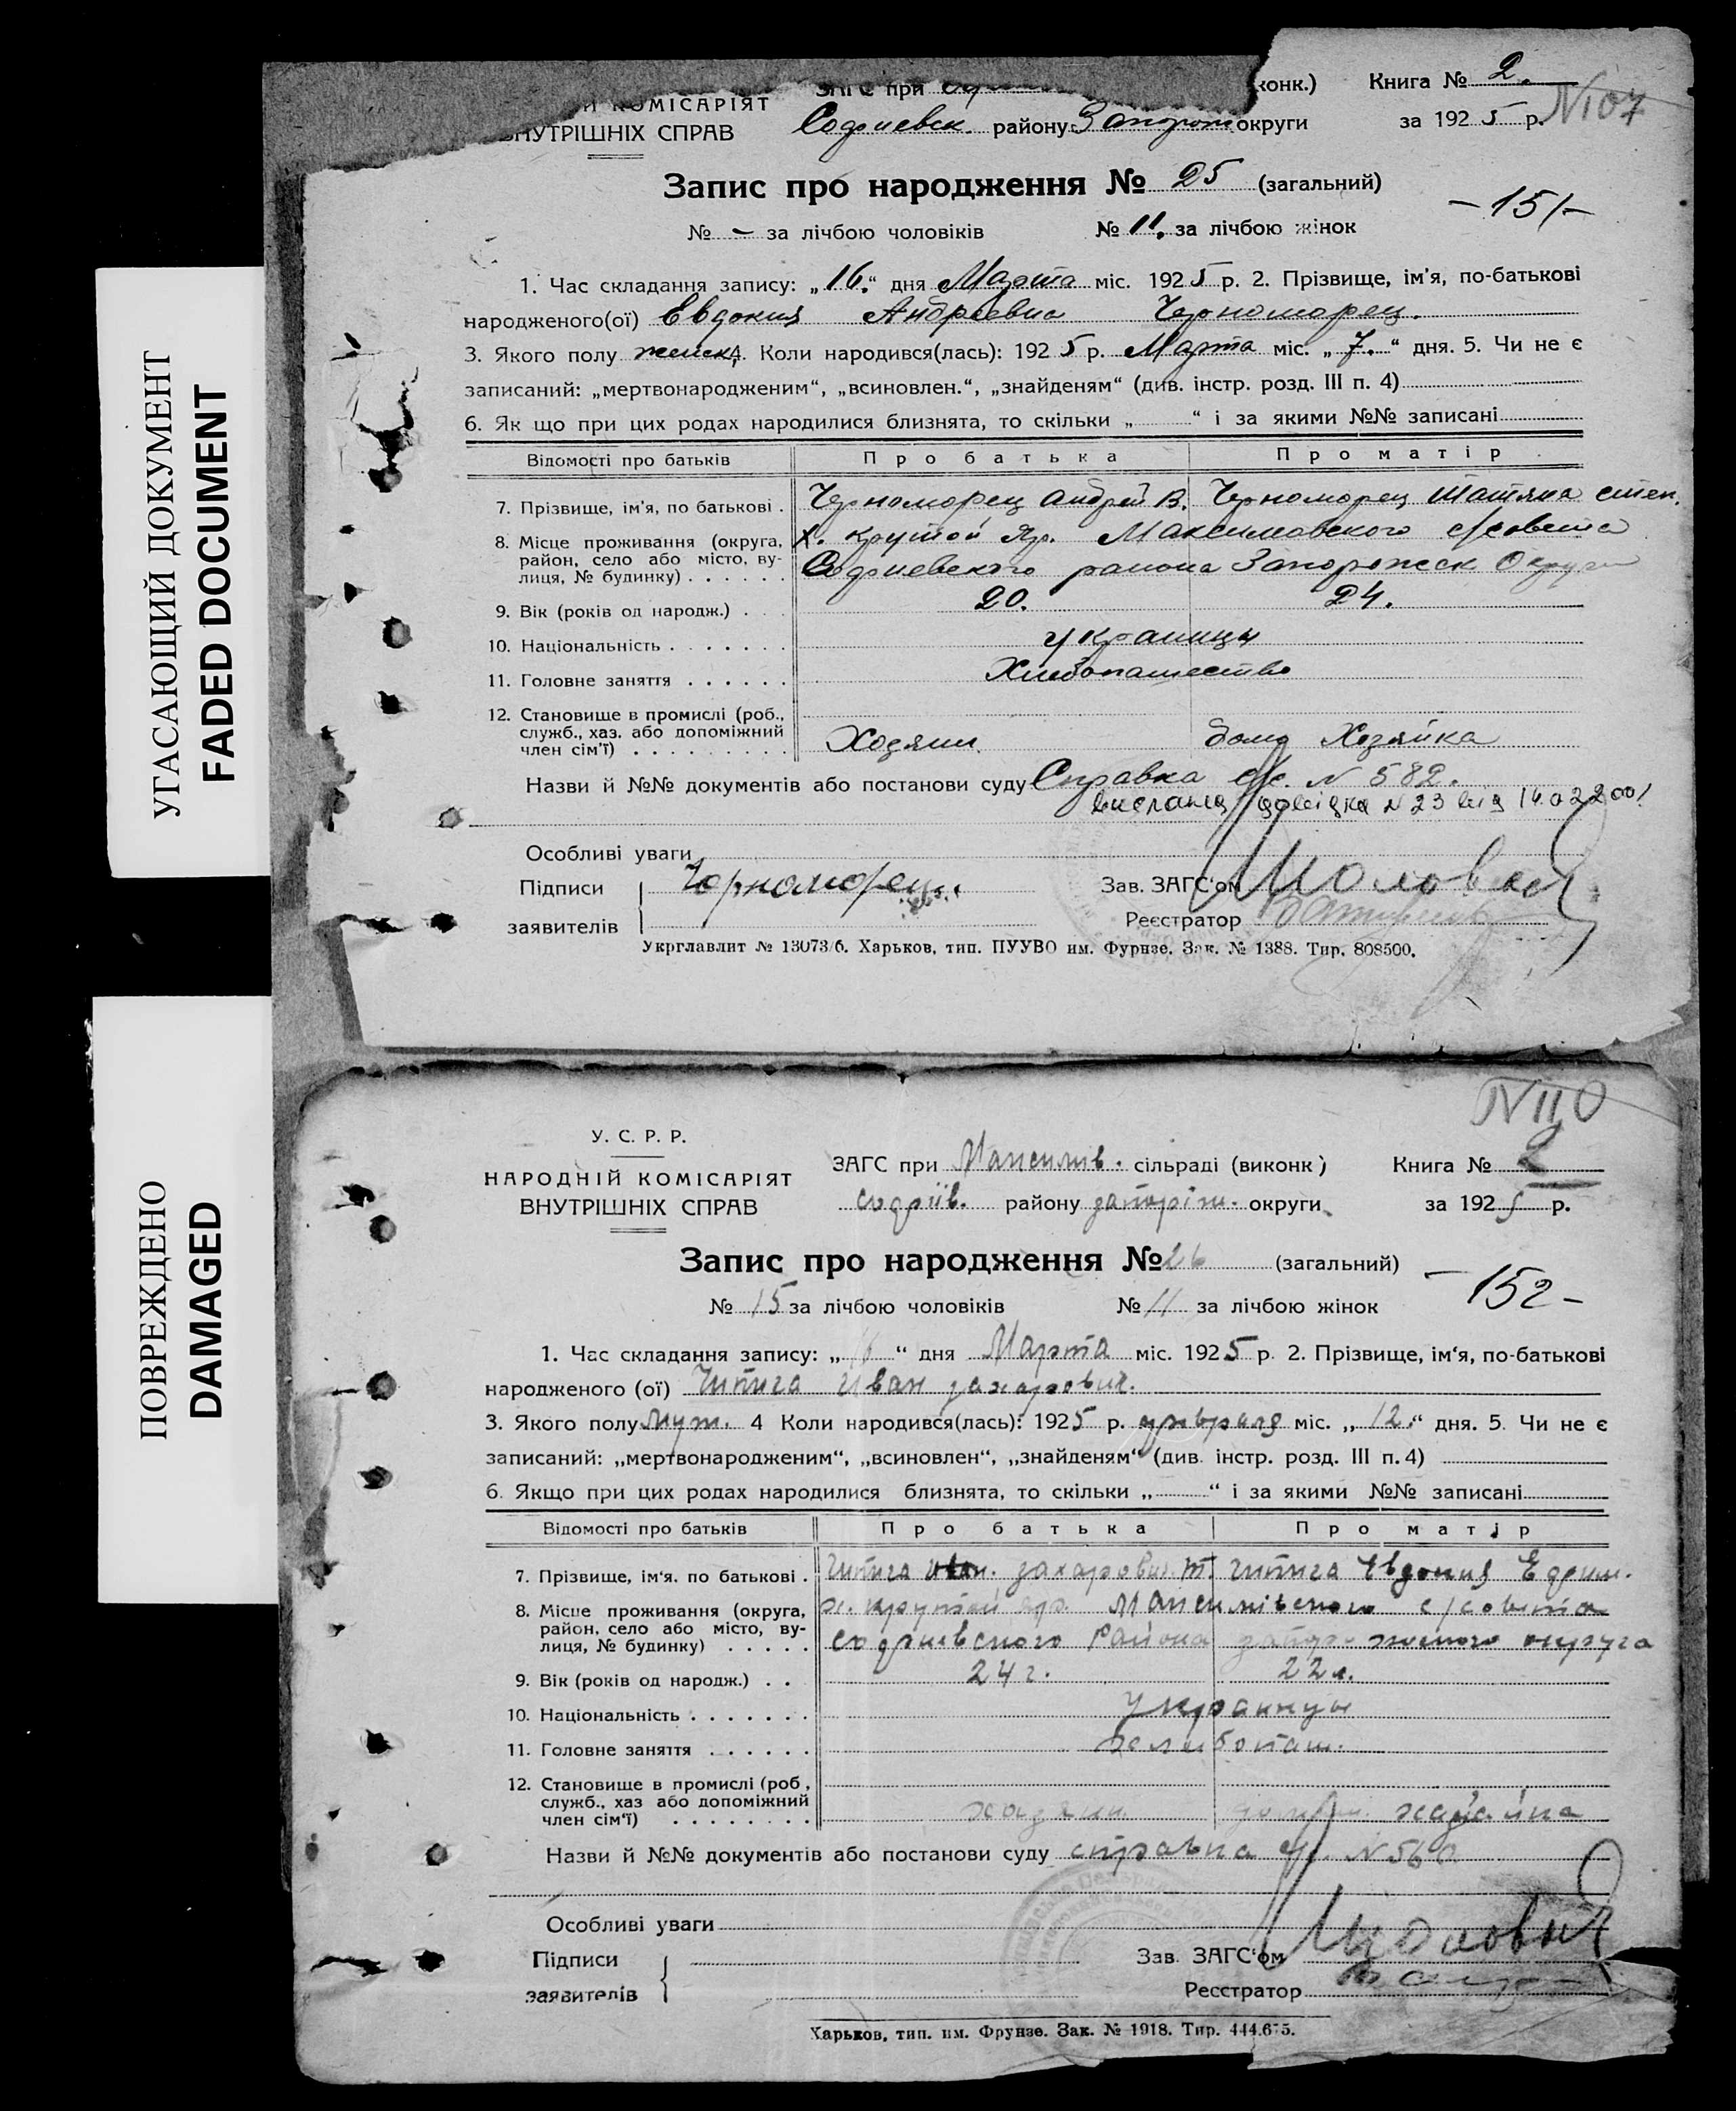 УГАСАЮЩИЙ ДОКУМЕНТ
FADED DOCUMENT
ПОВРЕЖДЕНО
DAMAGED
КОМІСАРІЯТ
ВНУТРІШНІХ СПРАВ
ЗАГС при
конк.) Книга № 2.
Софиевск. району Запорож округи за 1925 р.
N107
Запис про народження № 25 (загальний)
- 151 -
№ - за лічбою чоловіків № 11. за лічбою жінок
1. Час складання запису: „16.“ дня Марта міс. 1925 р. 2. Прізвище, ім'я, по-батькові
народженого(ої) Евдокия Андреевна Черноморец.
3. Якого полу женск 4. Коли народився(лась): 1925 р. Марта міс. „7.“ дня. 5. Чи не є
записаний: „мертвонародженим“, „всиновлен.“, „знайденям“ (див. інстр. розд. III п. 4)
6. Як що при цих родах народилися близнята, то скільки „ “ і за якими №№ записані
Відомості про батьків Про батька Про матір
7. Прізвище, ім'я, по батькові . Черноморец Андрей В. Черноморец Татяна Степ.
8. Місце проживання (округа, район, село або місто, вулиця, № будинку) х. Крутой Яр. Максимовского с/совета
Софиевского района Запорожск Округи
9. Вік (років од народж.) 20. 24.
10. Національність украинцы
11. Головне заняття Хлебопашество
12. Становище в промислі (роб., служб., хаз. або допоміжний член сім'ї) Хозяин дома Хозяйка
Назви й №№ документів або постанови суду Справка с/с. N 582.
вислана довідка N 23 від 14.02.2001
Особливі уваги
Підписи заявителів Чорноморец
Зав. ЗАГС'ом
Реєстратор
Укрглавлит № 13073/6. Харьков, тип. ПУУВО им. Фрунзе. Зак. № 1388. Тир. 808500.
N110
У. С. Р. Р.
НАРОДНІЙ КОМІСАРІЯТ
ВНУТРІШНІХ СПРАВ
ЗАГС при Максимів. сільраді (виконк) Книга № 2
софіїв. району запоріж. округи за 1925 р.
Запис про народження № 26 (загальний)
- 152 -
№ 15 за лічбою чоловіків № 11 за лічбою жінок
1. Час складання запису: „16“ дня Марта міс. 1925 р. 2. Прізвище, ім'я, по-батькові
народженого (ої) Чипига Иван захарович.
3. Якого полу Муж. 4 Коли народився(лась): 1925 р. февраля міс. „12.“ дня. 5. Чи не є
записаний: „мертвонародженим“, „всиновлен“, „знайденям“ (див. інстр. розд. III п. 4)
6. Якщо при цих родах народилися близнята, то скільки „ “ і за якими №№ записані
Відомості про батьків Про батька Про матір
7. Прізвище, ім'я. по батькові . Чипига захарович Чипига Евдокия Ефим.
8. Місце проживання (округа, район, село або місто, вулиця, № будинку) х. крутой яр. Максимівского с/совета
софиевского района запорожского округа
9. Вік (років од народж.) 24 г. 22 л.
10. Національність Украинцы
11. Головне заняття хлибопаш.
12. Становище в промислі (роб, служб., хаз або допоміжний член сім'ї) хазяин хазяйка
Назви й №№ документів або постанови суду справка с/с. N 56
Особливі уваги
Підписи заявителів
Зав. ЗАГС'ом
Реєстратор
Харьков, тип. им. Фрунзе. Зак. № 1918. Тир. 444.675.